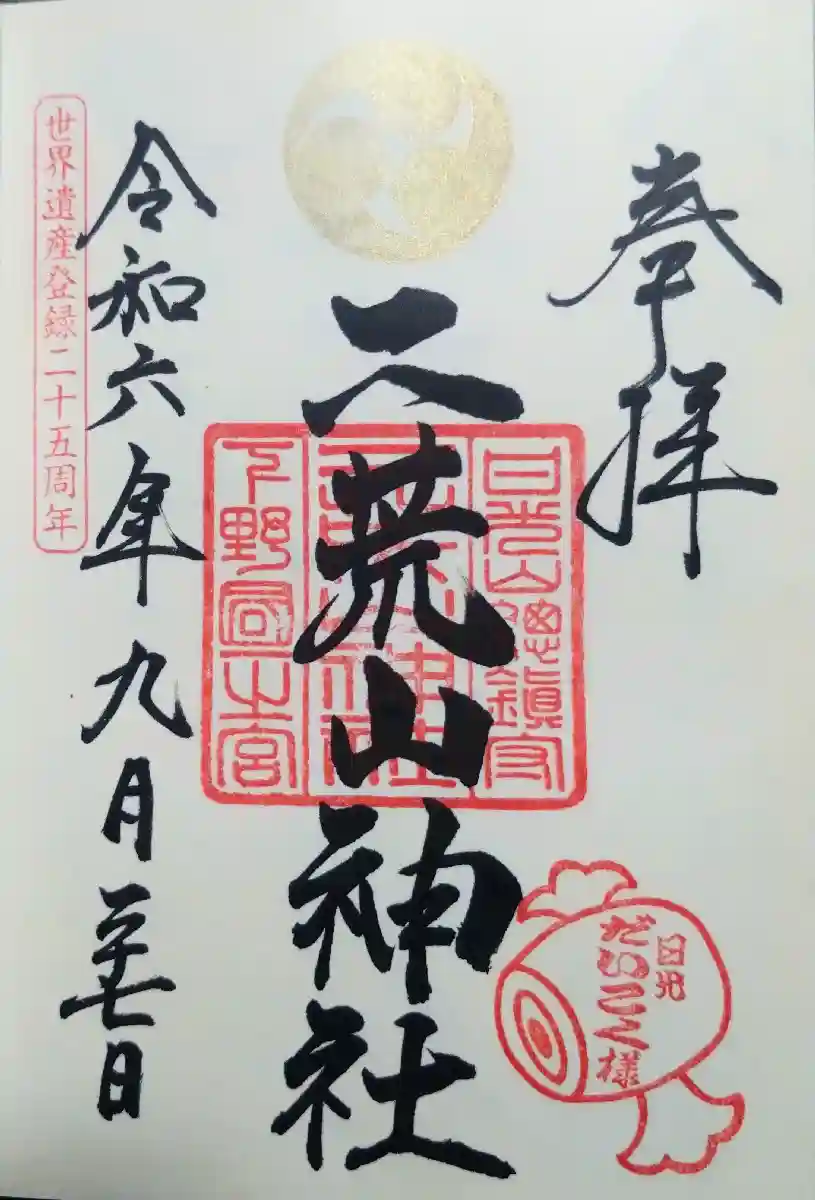 奉拝
日光山總鎮守
二荒山神社
下野國一之宮
令和六年九月二十七日
世界遺産登録二十五周年
日光
だいこく様